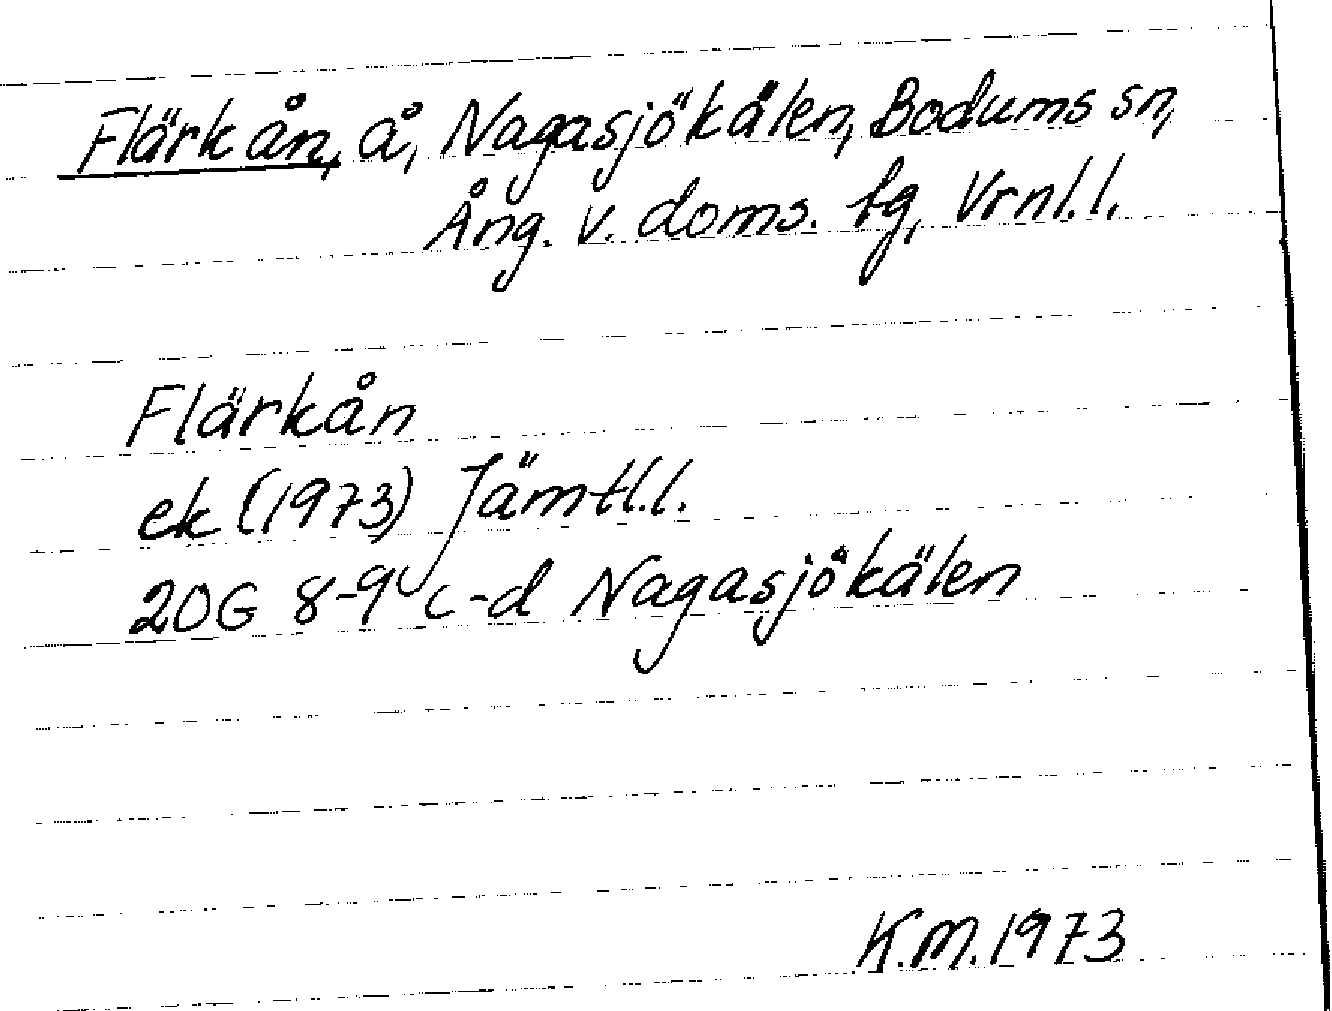 Flärkån, å, Nagasjökälen, Bodums sn,
Ång. v. doms. fg, Vrnl.l.
Flärkån
ek (1973) Jämtl.l.
20G 8-9 c-d Nagasjökälen
K.M. 1973